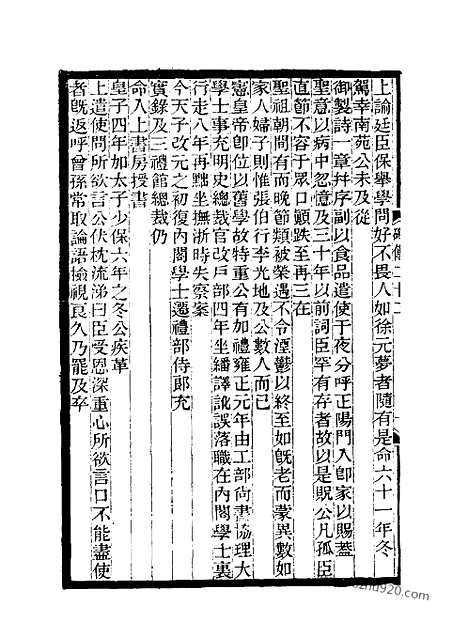 上諭廷臣保舉學問好不畏人如徐元夢者隨有是命六十一年冬
駕幸南苑公未及從
御製詩一章幷序副以食品遣使于夜分呼正陽門入卽家以賜蓋
聖意以病中忽憶及三十年以前詞臣罕有存者故以是貺公凡孤臣
直節不容于衆口顚跌至再三在
聖祖朝間有而晚節類被榮遇不令湮鬱以終至如旣老而蒙異數如
家人婦子則惟張伯行李光地及公數人而已
憲皇帝卽位以舊學故特重公有加禮雍正元年由工部尙書協理大
學士事充明史總裁官改戶部四年坐繙譯訛誤落職在內閣學士裏
行走八年再黜坐撫浙時失察案
今天子改元之初復內閣學士遷禮部侍郞充
實錄及三禮館總裁仍
命入上書房授書
皇子四年加太子少保六年之冬公疾革
上遣使問所欲言公伏枕流涕曰臣受恩深重心所欲言口不能盡使
者旣返呼曾孫常取論語檢視良久乃罷及卒
碑傳二十二